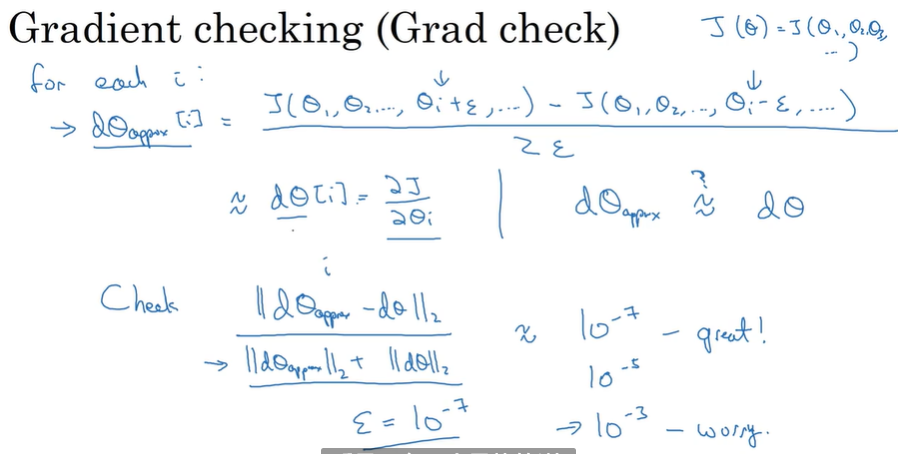 Gradient checking (Grad check)
J(θ) = J(θ₁, θ₂, θ₃, ...)
for each i:
→ dθapprox[i] = (J(θ₁, θ₂, ..., θᵢ+ε, ...) - J(θ₁, θ₂, ..., θᵢ-ε, ....)) / 2ε
≈ dθ[i] = ∂J/∂θᵢ | dθapprox ≈? dθ
i
Check ‖dθapprox - dθ‖₂ / (‖dθapprox‖₂ + ‖dθ‖₂) ≈ 10⁻⁷ - great!
10⁻⁵
ε = 10⁻⁷ → 10⁻³ - worry.